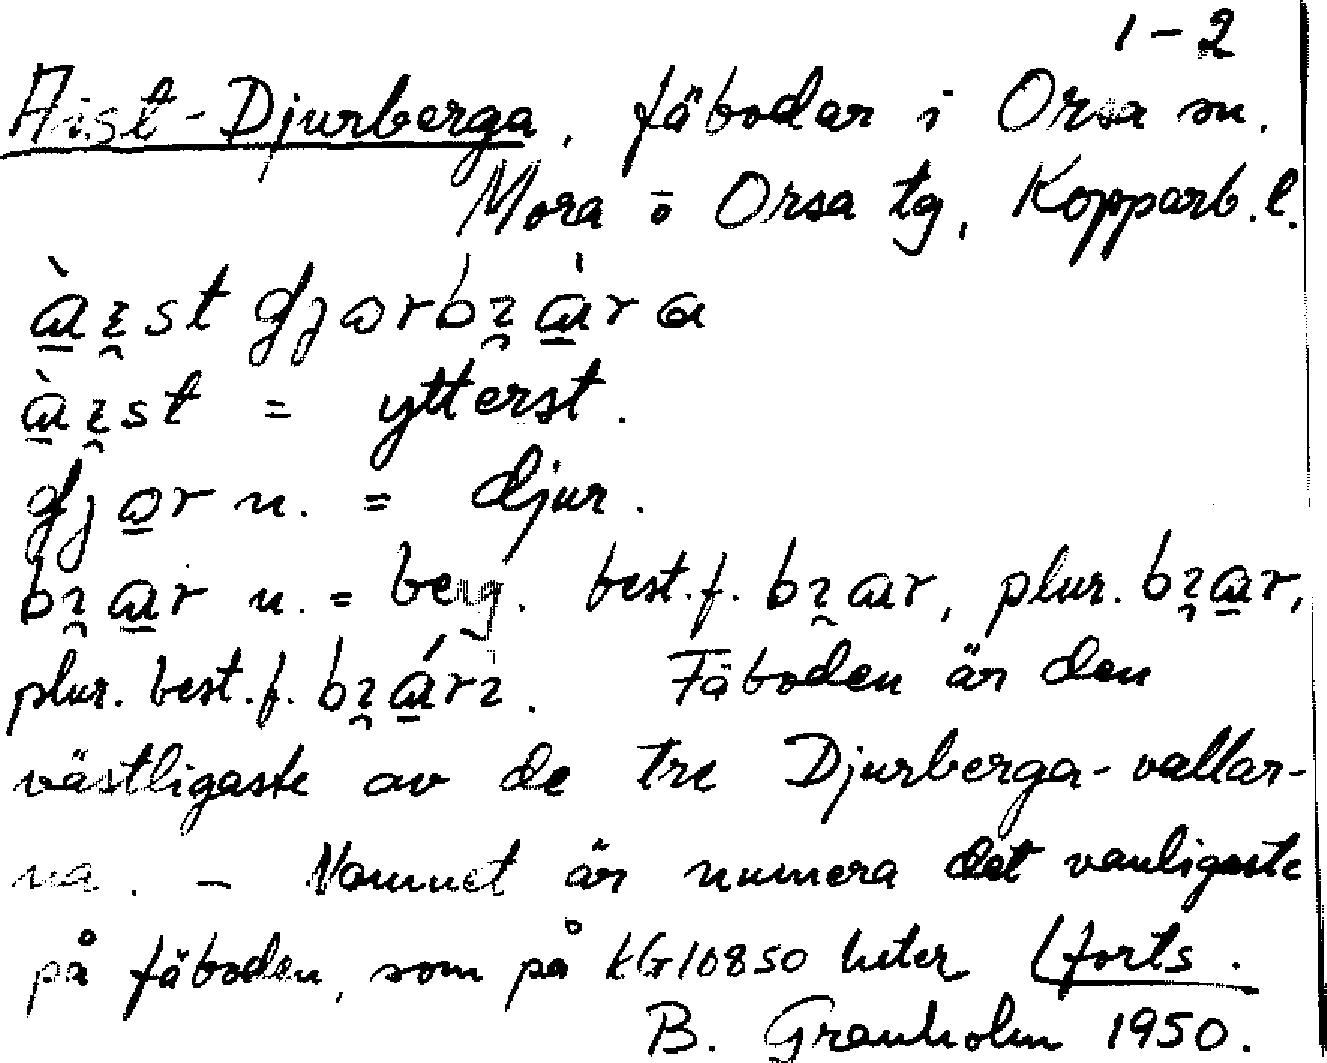 1-2
Aist-Djurberga, fäbodar i Orsa sn.
Mora o Orsa tg, Kopparb. l.
= ytterst.
n. = djur.
n. = berg. best. f. , plur.
plur. best. f. Fäboden är den
västligaste av de tre Djurberga-vallar-
na. - Namnet är numera det vanligaste
på fäboden, som på KG10850 heter (forts.
B. Granholm 1950.